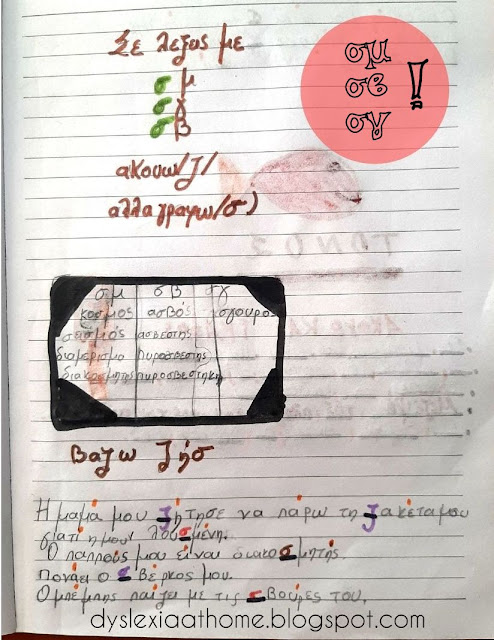 Σε λεξεις με
σμ
σγ
σβ
ακουω/ζ/
αλλα γραφω/σ)
σμ
σβ
σγ
!
ΤΟΝΟΣ
σμ σβ σγ
κοσμος ασβός σγουρος
σεισμός ασβεστης
διαμερισμα πυροσβεστης
διακοσμητης πυροσβεστηκη
Βαζω ζήσ
Η μαμά μου ζήτησε να πάρω τη ζακέτα μου
γιατί ήμουν λουσμένη.
Ο παππούς μου είναι διακοσμητής.
Πονάει ο σβέρκος μου.
Ο μπέμπης παίζει με τις σβούρες του.
dyslexiaathome.blogspot.com